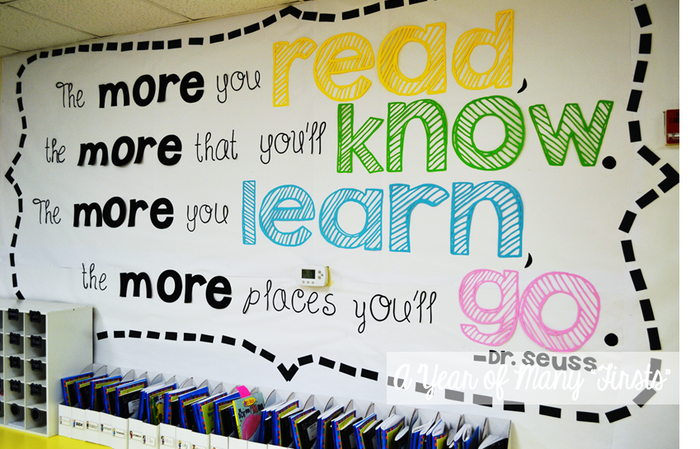 The more you read,
the more that you'll know.
The more you learn,
the more places you'll go.
-Dr. Seuss
A Year of Many "Firsts"